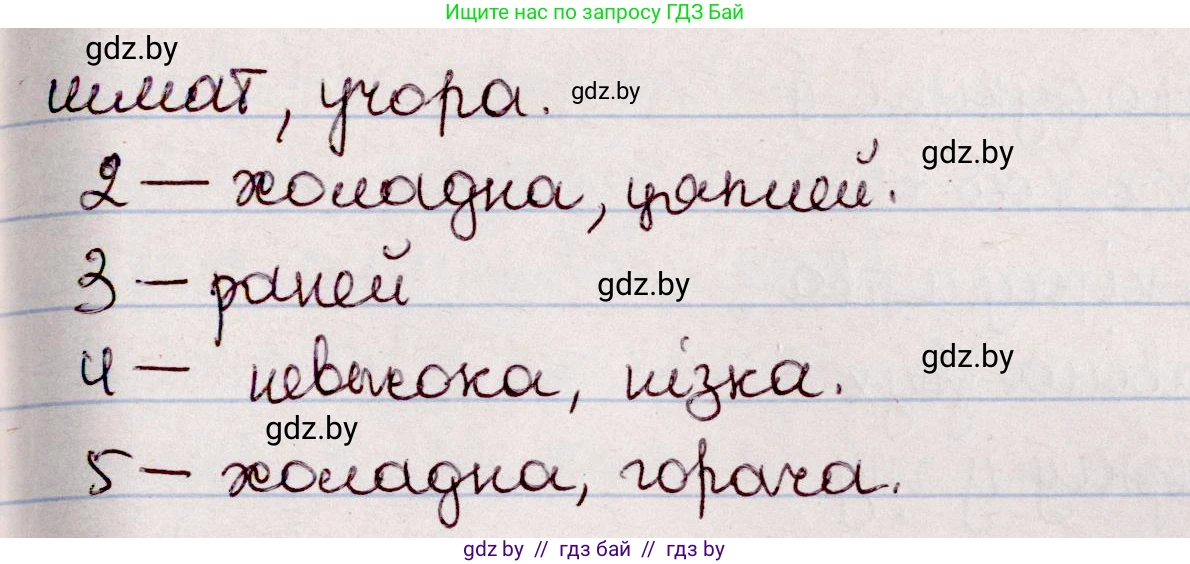 Ищите нас по запросу ГДЗ Бай
gdz.by
шмат, учора. gdz.by
2 – холадна, цяплей. gdz.by
3 – раней gdz.by
4 – невысока, нізка. gdz.by
gdz.by
5 – холадна, горача.
gdz by // гдз бай // гдз by